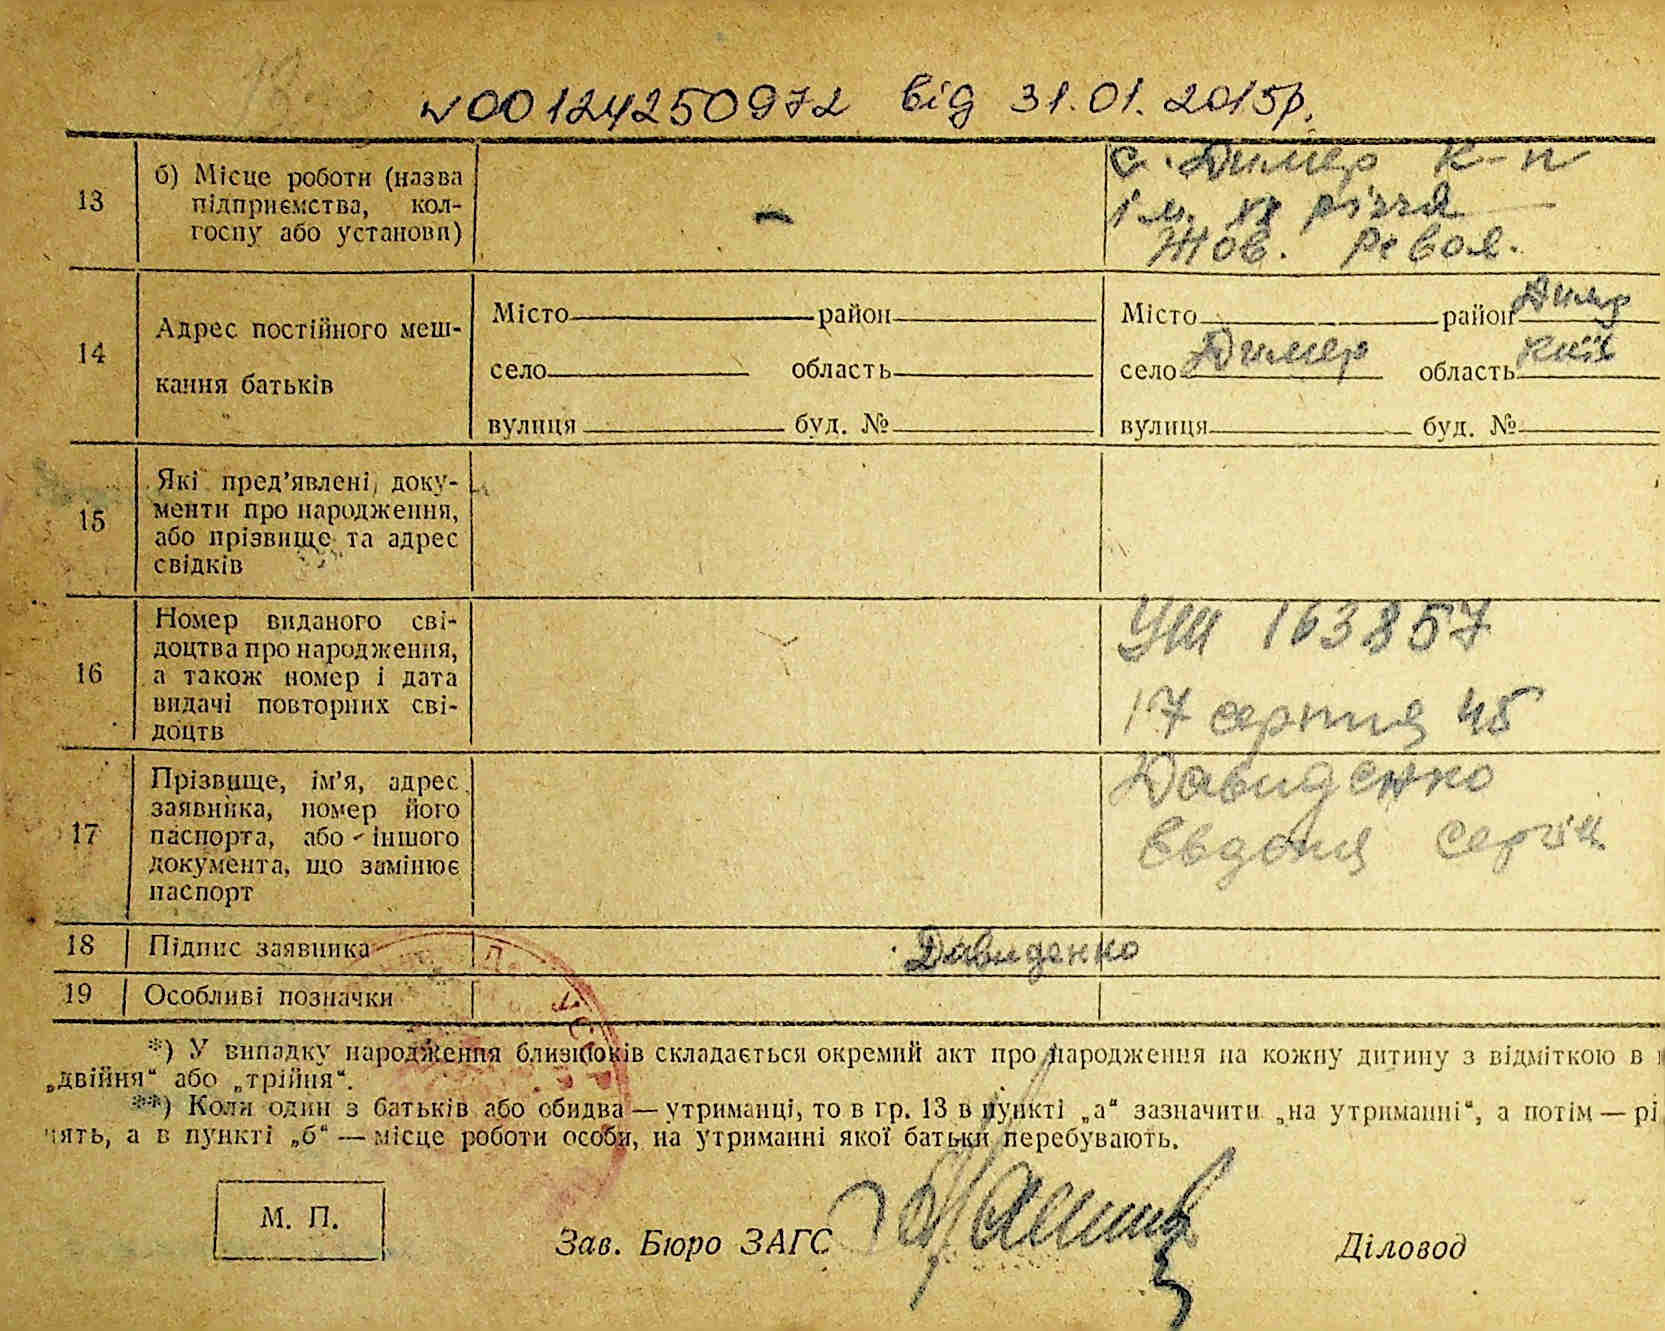 №00124250972 від 31.01.2015р.
13
б) Місце роботи (назва
підприємства, кол-
госпу або установи)
–
с. Димер к-п
ім. XX річчя
Жов. Револ.
14
Адрес постійного меш-
кання батьків
Місто район
село область
вулиця буд. №
Місто район Димер
село Димер область Київ
вулиця буд. №
15
Які пред’явлені доку-
менти про народження,
або прізвище та адрес
свідків
16
Номер виданого сві-
доцтва про народження,
а також номер і дата
видачі повторних сві-
доцтв
УШ 163857
17 серпня 45
17
Прізвище, ім’я, адрес
заявника, номер його
паспорта, або іншого
документа, що замінює
паспорт
Давиденко
Євдокія Сергіїв
18 Підпис заявника Давиденко
19 Особливі позначки
*) У випадку народження близнюків складається окремий акт про народження на кожну дитину з відміткою в
„двійня“ або „трійня“.
**) Коли один з батьків або обидва — утриманці, то в гр. 13 в пункті „а“ зазначити „на утриманні“, а потім — рі
чять, а в пункті „б“ — місце роботи особи, на утриманні якої батьки перебувають.
М. П.
Зав. Бюро ЗАГС
Діловод